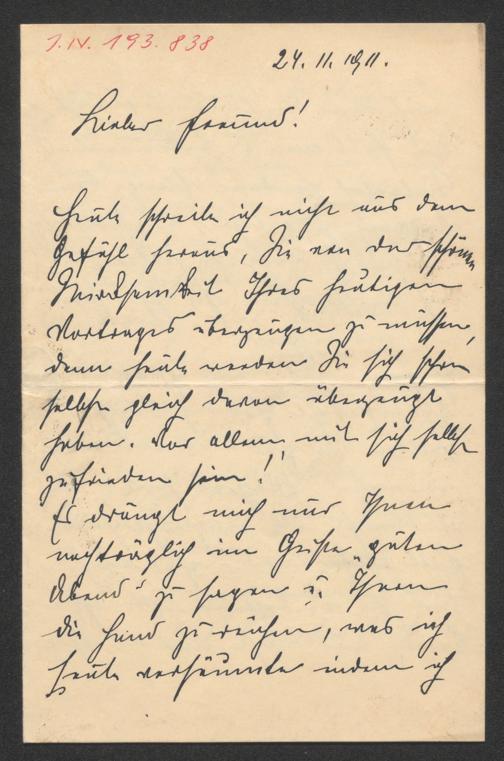 I. N. 193.838
24. 11. 1911.
Lieber Freund!
Heute schreibe ich nicht aus dem
Gefühl heraus, Sie von der schönen
Wirksamkeit Ihres heutigen
Vortrages überzeugen zu müssen,
denn heute werden Sie sich schon
selbst gleich davon überzeugt
haben. Vor allem mit sich selbst
zufrieden sein!
Es drängt mich nur Ihnen
nachträglich im Geiste „guten
Abend" zu sagen u. Ihnen
die Hand zu reichen, was ich
heute versäumte indem ich